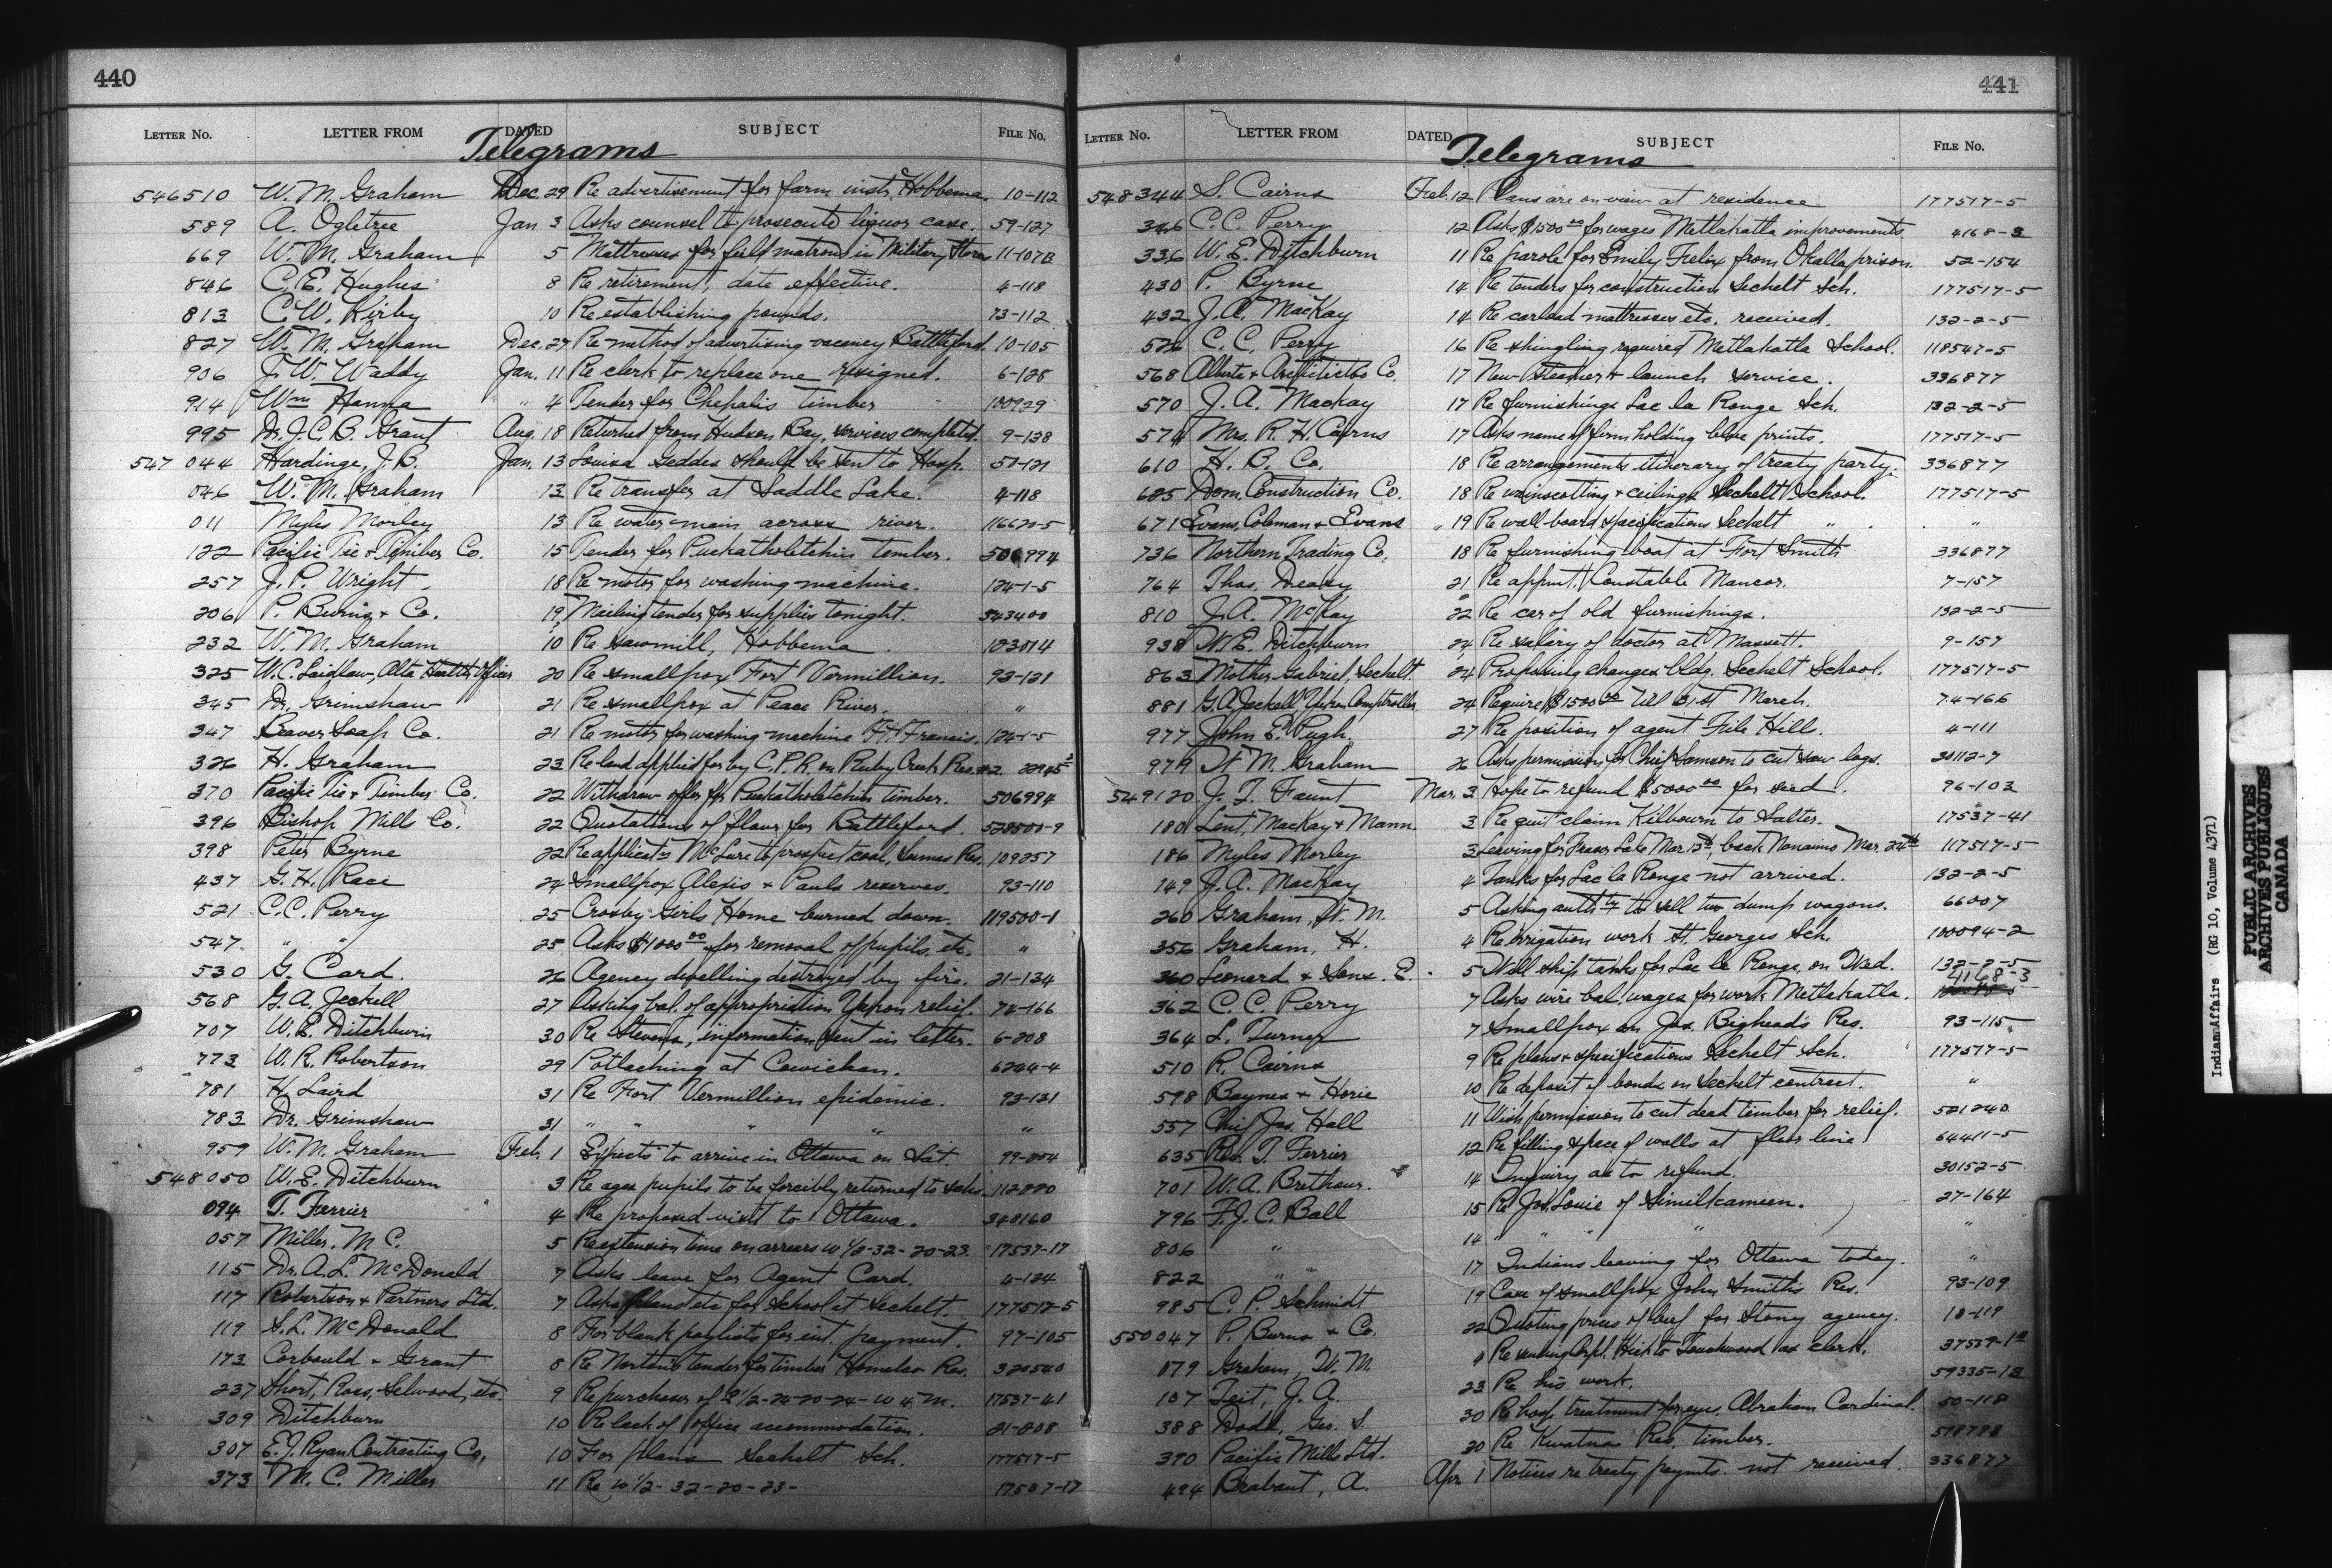 440
LETTER NO. LETTER FROM DATED SUBJECT FILE NO.
Telegrams
546510 W. M. Graham Dec. 29 Re advertisement for farm instr. Hobbema. 10-112
589 A. Ogletree Jan. 3 Asks counsel to prosecute liquor case. 59-127
669 W. M. Graham 5 Mattresses for field matrons in Military Stores 11-107B
846 C. E. Hughes 8 Re retirement, date effective. 4-118
813 C. W. Kirby 10 Re establishing pounds. 73-112
827 W. M. Graham Dec. 27 Re method of advertising vacancy Battleford. 10-105
906 J. W. Waddy Jan. 11 Re clerk to replace one resigned. 6-128
914 Wm Hanna " 4 Tender for Chehalis timber 100929
995 Dr. J. C. B. Grant Aug. 18 Returned from Hudson Bay, services completed. 9-138
547 044 Hardinge, J. B. Jan. 13 Louisa Geddes should be sent to Hosp. 50-121
046 W. M. Graham 13 Re transfer at Saddle Lake. 4-118
011 Myles Morley 13 Re water main across river. 116620-5
122 Pacific Tie & Timber Co. 15 Tender for Puckatholetchin timber. 506994
257 J. P. Wright 18 Re motor for washing machine. 124-1-5
206 P. Burns & Co. 19 Mailing tender for supplies tonight. 543400
232 W. M. Graham 10 Re sawmill, Hobbema. 123014
325 W. C. Laidlaw, Alta Health Officer 20 Re smallpox Fort Vermillion. 93-131
345 Dr. Grimshaw 21 Re smallpox at Peace River. "
347 Beaver Soap Co. 21 Re motor for washing machine Ft. Francis. 124-1-5
326 H. Graham 23 Re land applied for by C.P.R. on Ruby Creek Res. #2. 22945
370 Pacific Tie & Timber Co. 22 Withdraw offer for Puckatholetchin timber. 506994
396 Bishop Mill Co. 22 Quotations of flour for Battleford. 528500-9
398 Peter Byrne 22 Re applicatn McLure to prospect coal, Sumas Res. 109257
437 G. H. Race 24 Smallpox Alexis & Pauls reserves. 93-110
521 C. C. Perry 25 Crosby Girls Home burned down. 119500-1
547 " " 25 Asks $1000.00 for removal of pupils, etc. "
530 G. Card. 26 Agency dwelling destroyed by fire. 21-134
568 G. A. Jeckell 27 Asking bal. of appropriation Yukon relief. 74-166
707 W. E. Ditchburn 30 Re Stevens, information sent in letter. 6-208
773 W. R. Robertson 29 Potlaching at Cowichan. 6244-4
781 H. Laird 31 Re Fort Vermillion epidemic. 93-131
783 Dr. Grimshaw 31 " " " " "
959 W. M. Graham Feb. 1 Expects to arrive in Ottawa on Sat. 99-204
548050 W. E. Ditchburn 3 Re ages pupils to be forcibly returned to schs. 112220
094 T. Ferrier 4 Re proposed visit to Ottawa. 348160
057 Miller, M. C. 5 Re extension time on arrears W 1/2-32-20-23. 17537-17
115 Dr. A. L. McDonald 7 Asks leave for Agent Card. 4-134
117 Robertson & Partners Ltd. 7 Asks plans etc for School at Sechelt 177517-5
119 S. L. McDonald 8 For blank paylists for int. payment. 97-105
173 Corbould & Grant 8 Re Norton's tender for timber Homalco Res. 320540
237 Short, Ross, Selwood, etc. 9 Re purchases of E 1/2-24-20-24-W 4 M. 17537-41
309 Ditchburn 10 Re lack of office accommodation. 21-208
307 E. J. Ryan Contracting Co. 10 For plans Sechelt Sch. 177517-5
373 M. C. Miller 11 Re W 1/2-32-20-23- 17537-17
441
LETTER NO. LETTER FROM DATED SUBJECT FILE NO.
Telegrams
548344 S. Cairns Feb. 12 Plans are on view at residence 177517-5
346 C. C. Perry 12 Asks $1500.00 for wages Metlakatla improvements. 4168-3
336 W. E. Ditchburn 11 Re parole for Emily Felix from Okalla prison. 52-154
430 P. Byrne 14 Re tenders for construction Sechelt Sch. 177517-5
432 J. A. MacKay 14 Re carload mattresses etc. received. 132-2-5
526 C. C. Perry 16 Re shingling required Metlakatla School. 118547-5
568 Alberta & Arctic Co. 17 New Steamer & launch service. 336877
570 J. A. Mackay 17 Re furnishings Lac la Ronge Sch. 132-2-5
574 Mrs. R. H. Cairns 17 Asks name of firm holding blue prints. 177517-5
610 H. B. Co. 18 Re arrangements itinerary of treaty party. 336877
685 Dom. Construction Co. 18 Re wainscotting & ceilings Sechelt School. 177517-5
671 Evans, Coleman & Evans 19 Re wall board specifications Sechelt " "
736 Northern Trading Co. 18 Re furnishing boat at Fort Smith 336877
764 Thos. Deasy 21 Re appmt. Constable Mancor. 7-157
810 J. A. McKay 22 Re car of old furnishings. 132-2-5
938 W. E. Ditchburn 24 Re salary of doctor at Massett. 9-157
863 Mother Gabriel, Sechelt. 24 Proposing changes bldg. Sechelt School. 177517-5
881 G. A. Jeckell Yukon Comptroller 24 Require $1500.00 till 31st March. 74-166
977 John E. Pugh. 27 Re position of agent File Hill. 4-111
979 W. M. Graham 26 Asks permission for Chief Samson to cut saw logs. 30112-7
549120 J. T. Faunt Mar. 3 Hope to refund $5000.00 for seed. 96-103
180 Lent, MacKay & Mann. 3 Re quit claim Kilbourn to Salter. 17537-41
186 Myles Morley 3 Leaving for Fraser Lake Mar 12th, back Nanaimo Mar. 24th 117517-5
149 J. A. MacKay 4 Tanks for Lac la Ronge not arrived. 132-2-5
260 Graham, W. M. 5 Asking authty to sell two dump wagons. 66007
356 Graham, H. 4 Re irrigation work St. Georges Sch. 100094-2
360 Leonard & Sons. E. 5 Will ship tanks for Lac la Ronge on Wed. 132-2-5
362 C. C. Perry 7 Asks wire bal. wages for work Metlakatla. 4168-3
364 L. Turner 7 Smallpox on Jos. Bighead's Res. 93-115
510 R. Cairns 9 Re plans & specifications Sechelt Sch. 177517-5
598 Baynes & Horie 10 Re deposit of bonds on Sechelt contract. "
557 Chief Jas. Hall 11 Wish permission to cut dead timber for relief. 501240
635 Rev. T. Ferrier 12 Re filling space of walls at floor line 64411-5
701 W. A. Brethour. 14 Inquiry as to refund. 30152-5
796 F. J. C. Ball 15 Re Jos. Louie of Similkameen. 27-164
806 " 14 " " " "
822 " " 17 Indians leaving for Ottawa today. "
985 C. P. Schmidt 19 Case of smallpox John Smith's Res. 93-109
550047 P. Burns & Co. 22 Quoting prices of beef for Stony agency. 10-119
079 Graham, W. M. Re sending Cpl. to Touchwood as clerk.
107 Teit, J. A. 23 Re his work. 59335-13
388 Dodd, Geo. S. 30 Re hosp. treatment for eyes, Abraham Cardinal. 50-118
390 Pacific Mills Ltd. 30 Re Kwatna Res. timber. 518798
494 Brabant, A. Apr. 1 Notices re treaty paymts. not received. 336877
Indian Affairs (RG 10, Volume 4371)
PUBLIC ARCHIVES
ARCHIVES PUBLIQUES
CANADA